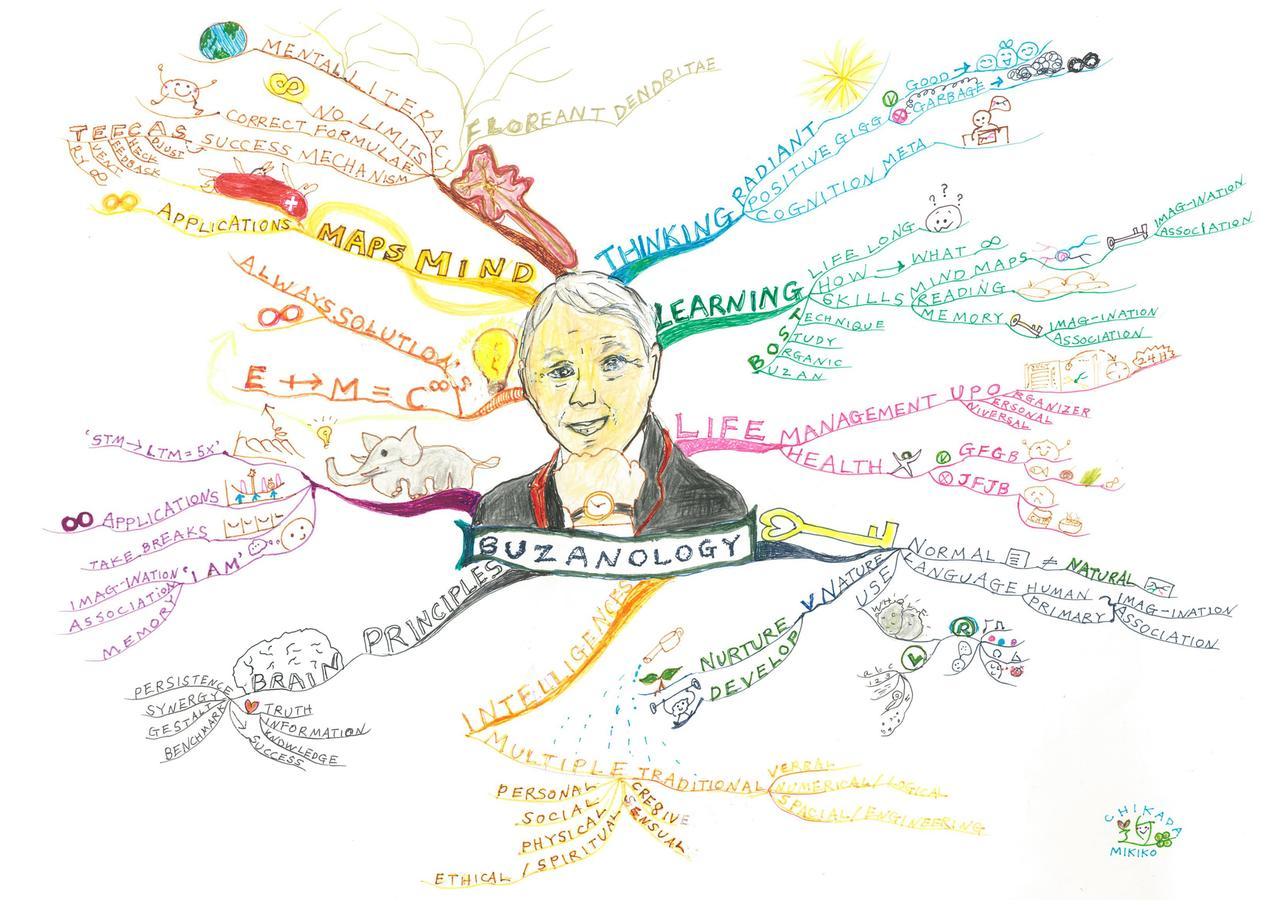 BUZANOLOGY
FLOREANT DENDRITAE
MENTAL LITERACY
NO LIMITS
CORRECT FORMULAE
SUCCESS MECHANISM
TEFCAS
TRY
EVENT
FEEDBACK
CHECK
ADJUST
MIND MAPS
APPLICATIONS
ALWAYS SOLUTION/S
E ↔ M = C∞
'STM → LTM = 5X'
APPLICATIONS
TAKE BREAKS
'I AM'
IMAG-INATION
ASSOCIATION
MEMORY
PRINCIPLES
BRAIN
PERSISTENCE
SYNERGY
GESTALT
BENCHMARK
TRUTH
INFORMATION
KNOWLEDGE
SUCCESS
INTELLIGENCES
MULTIPLE
TRADITIONAL
VERBAL
NUMERICAL/LOGICAL
SPACIAL/ENGINEERING
CRE8IVE
SENSUAL
PERSONAL
SOCIAL
PHYSICAL
ETHICAL / SPIRITUAL
THINKING
RADIANT
POSITIVE GIGG
GOOD →
V
GARBAGE →
COGNITION META
LEARNING
LIFE LONG
? ? ?
HOW → WHAT ∞
SKILLS
MIND MAPS
IMAG-INATION
ASSOCIATION
READING
MEMORY
IMAG-INATION
ASSOCIATION
BOST
TECHNIQUE
STUDY
ORGANIC
BUZAN
LIFE
MANAGEMENT
UPO
ORGANIZER
PERSONAL
UNIVERSAL
24 HS
HEALTH
V
GFGB
JFJB
NORMAL ≠ NATURAL
LANGUAGE HUMAN
PRIMARY
IMAG-INATION
ASSOCIATION
USE
WHOLE
R
L
a b c
1 2 3
V NATURE
NURTURE
DEVELOP
CHIKADA
MIKIKO